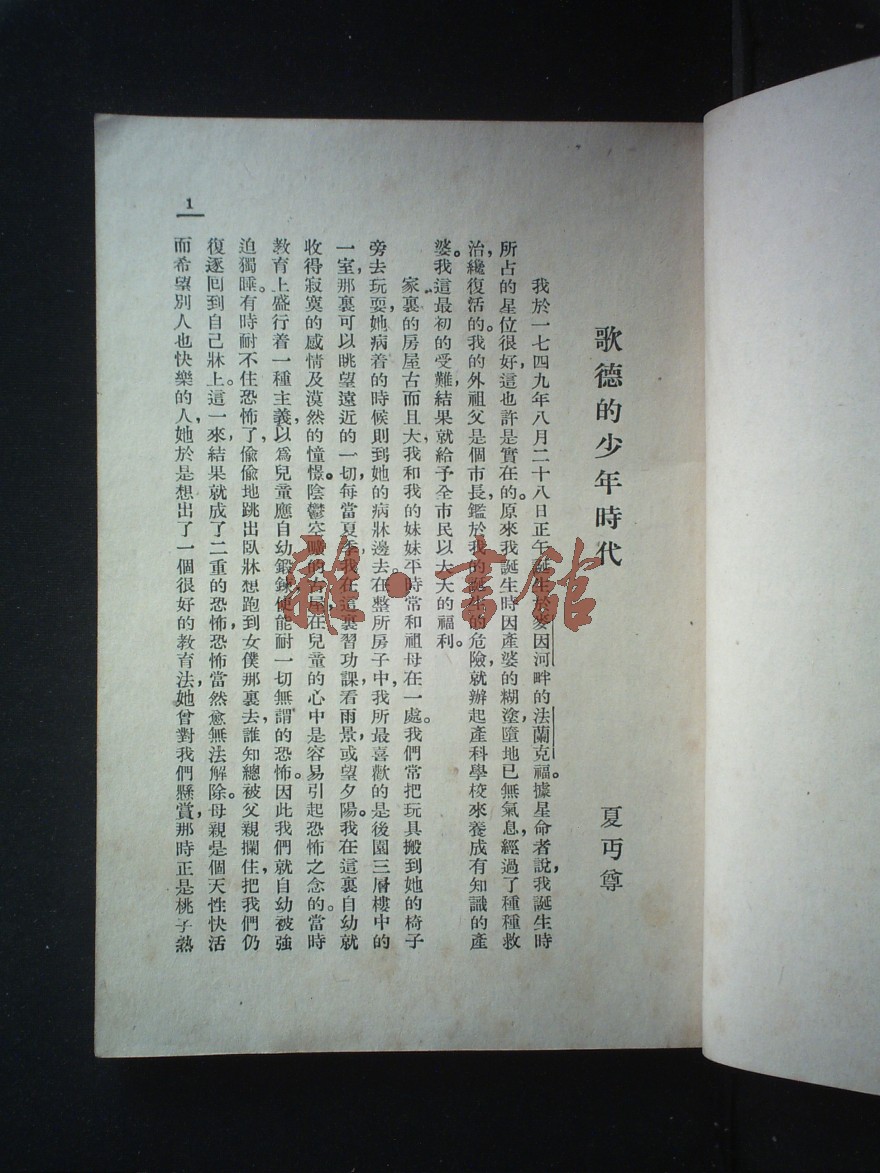 歌德的少年時代
夏丏尊
我於一七四九年八月二十八日正午誕生於麥因河畔的法蘭克福。據星命者說,我誕生時
所占的星位很好,這也許是實在的。原來我誕生時因產婆的糊塗,墮地已無氣息,經過了種種救
治,纔復活的。我的外祖父是個市長,鑑於我的誕生的危險,就辦起產科學校來養成有知識的產
婆。我這最初的受難,結果就給予全市民以大大的福利。
家裏的房屋古而且大,我和我的妹妹平時常和祖母在一處。我們常把玩具搬到她的椅子
旁去玩耍,她病着的時候則到她的病牀邊去。在整所房子中,我所最喜歡的是後園三層樓中的
一室,那裏可以眺望遠近的一切,每當夏季,我在這裏習功課,看雨景,或望夕陽。我在這裏自幼就
收得寂寞的感情及漠然的憧憬。陰鬱空曠的古屋,在兒童的心中是容易引起恐怖之念的。當時
教育上盛行着一種主義,以爲兒童應自幼鍛鍊,使能耐一切無謂的恐怖。因此我們就自幼被強
迫獨睡。有時耐不住恐怖了,偷偷地跳出臥牀想跑到女僕那裏去,誰知總被父親攔住,把我們仍
復逐回到自己牀上。這一來,結果就成了二重的恐怖,恐怖當然愈無法解除。母親是個天性快活
而希望別人也快樂的人,她於是想出了一個很好的教育法,她曾對我們懸賞,那時正是桃子熟
1
雜·書館